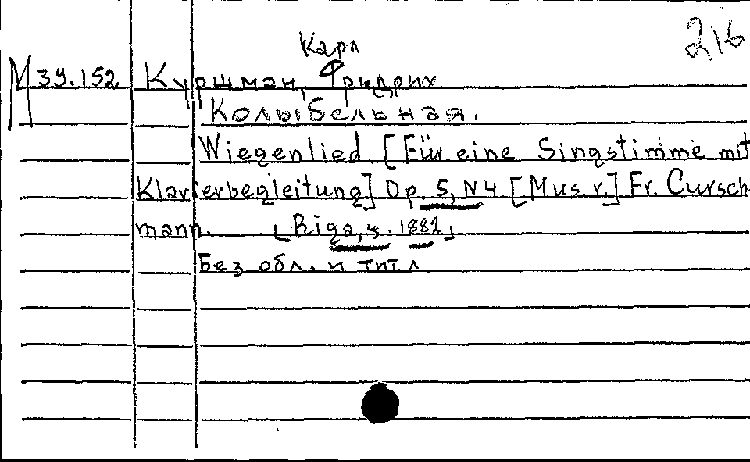 216
Карл
М 39.152 Куршман, Фридрих
Колыбельная.
Wiegenlied [Für eine Singstimme mit
Klavierbegleitung] Op. 5, N4 [Mus v.] Fr. Cursch
mann. [Riga,
Без обл. и титл